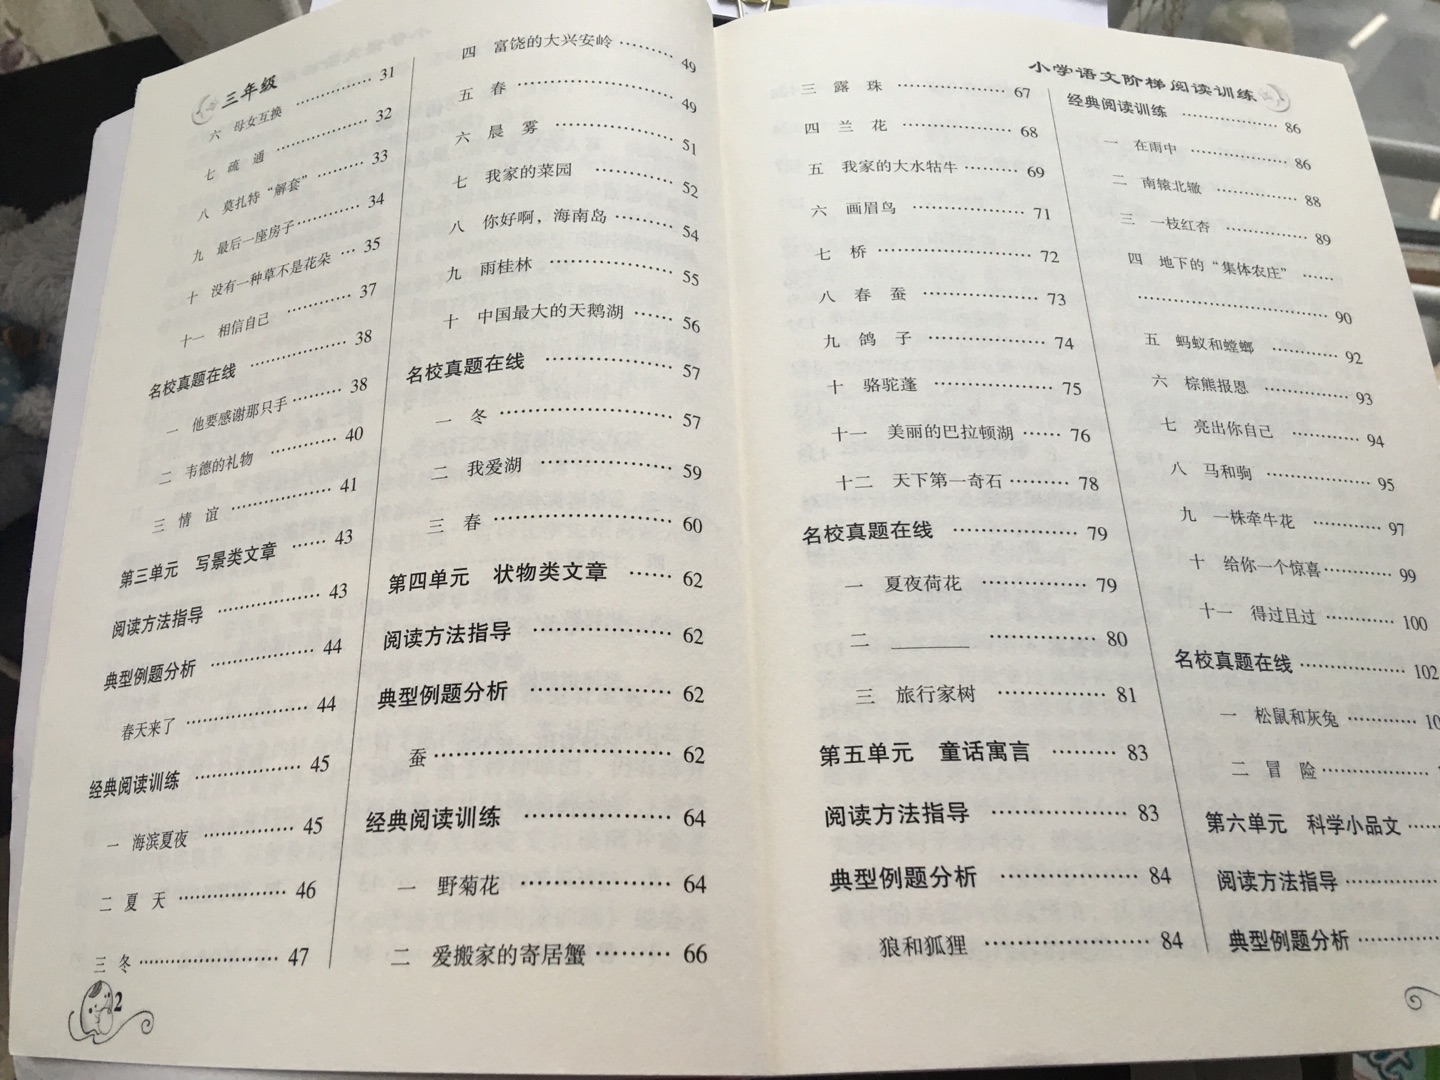 三年级
六 母女互换 …………… 31
七 疏 通 …………… 32
八 莫扎特“解套” …………… 33
九 最后一座房子 …………… 34
十 没有一种草不是花朵 … 35
十一 相信自己 …………… 37
名校真题在线 …………… 38
一 他要感谢那只手 …………… 38
二 韦德的礼物 …………… 40
三 情 谊 …………… 41
第三单元 写景类文章 …… 43
阅读方法指导 …………… 43
典型例题分析 …………… 44
春天来了 …………… 44
经典阅读训练 …………… 45
一 海滨夏夜 …………… 45
二 夏 天 …………… 46
三 冬 …………… 47
2
四 富饶的大兴安岭 ……… 49
五 春 …………… 49
六 晨 雾 …………… 51
七 我家的菜园 ………… 52
八 你好啊，海南岛 ……… 54
九 雨桂林 …………… 55
十 中国最大的天鹅湖 …… 56
名校真题在线 …………… 57
一 冬 …………… 57
二 我爱湖 …………… 59
三 春 …………… 60
第四单元 状物类文章 …… 62
阅读方法指导 …………… 62
典型例题分析 …………… 62
蚕 …………… 62
经典阅读训练 …………… 64
一 野菊花 …………… 64
二 爱搬家的寄居蟹 ……… 66
小学语文阶梯阅读训练
三 露 珠 …………… 67
四 兰 花 …………… 68
五 我家的大水牯牛 ……… 69
六 画眉鸟 …………… 71
七 桥 …………… 72
八 春 蚕 …………… 73
九 鸽 子 …………… 74
十 骆驼蓬 …………… 75
十一 美丽的巴拉顿湖 …… 76
十二 天下第一奇石 ……… 78
名校真题在线 …………… 79
一 夏夜荷花 …………… 79
二 ________ …………… 80
三 旅行家树 …………… 81
第五单元 童话寓言 ……… 83
阅读方法指导 …………… 83
典型例题分析 …………… 84
狼和狐狸 …………… 84
经典阅读训练 …………… 86
一 在雨中 …………… 86
二 南辕北辙 …………… 88
三 一枝红杏 …………… 89
四 地下的“集体农庄” ……
…………… 90
五 蚂蚁和螳螂 ………… 92
六 棕熊报恩 …………… 93
七 亮出你自己 ………… 94
八 马和驹 …………… 95
九 一株牵牛花 ………… 97
十 给你一个惊喜 ………… 99
十一 得过且过 ………… 100
名校真题在线 …………… 102
一 松鼠和灰兔 …………
二 冒 险 ……………
第六单元 科学小品文 ……
阅读方法指导 …………
典型例题分析 …………